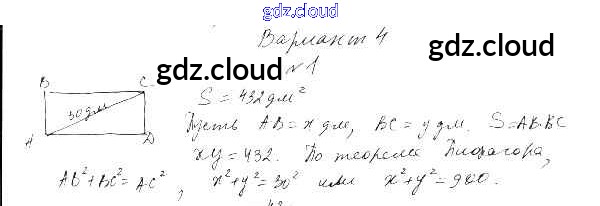 gdz.cloud
Вариант 4
gdz.cloud
gdz.cloud
№1
B C
S = 432 дм²
30 дм
Пусть AB = x дм, BC = y дм. S = AB·BC
A D
xy = 432. По теореме Пифагора,
AB² + BC² = AC², x² + y² = 30² или x² + y² = 900.